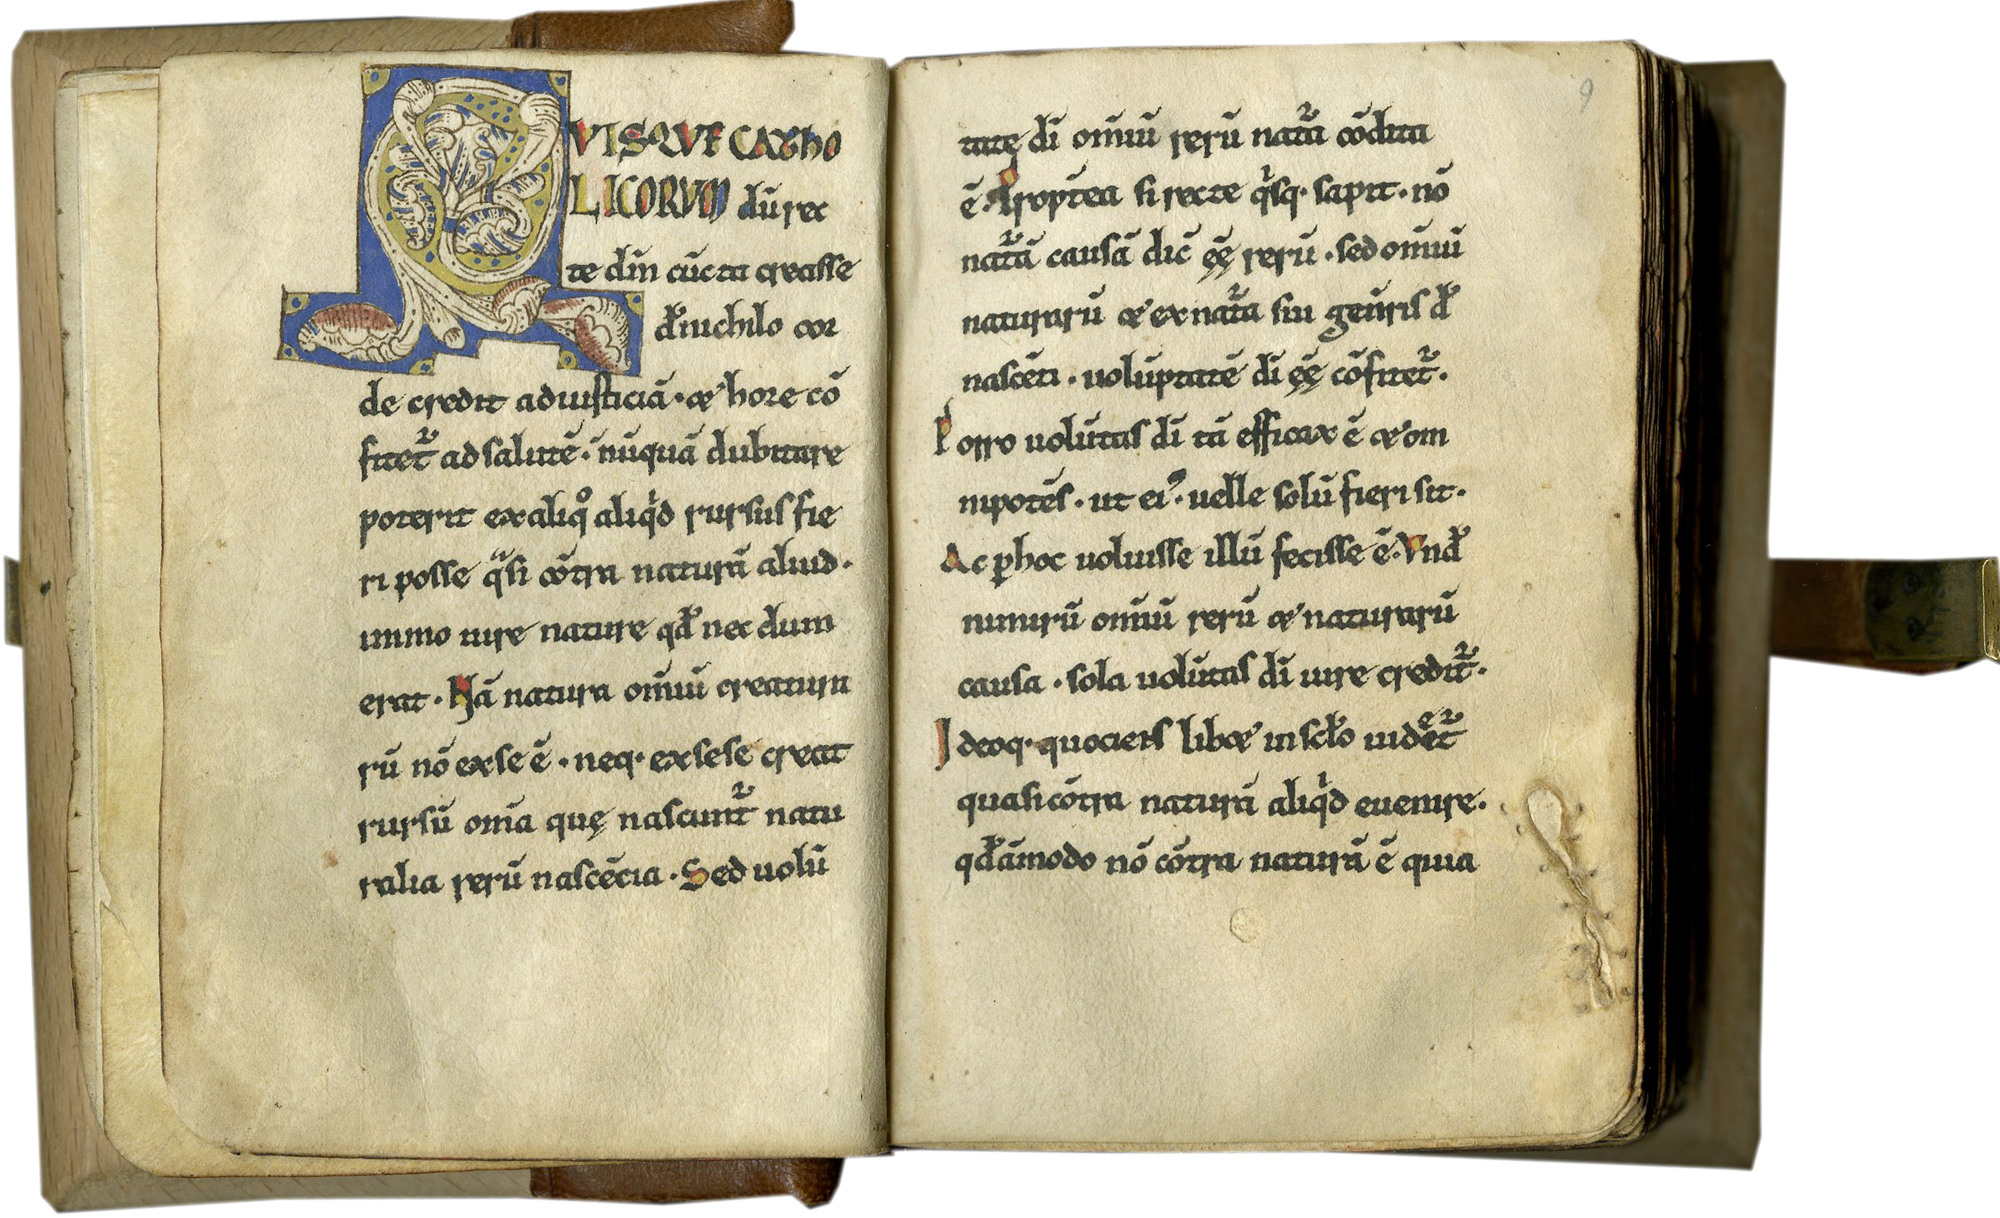 QVISQVE CATHO
LICORVM dū rec
te dm̄ cūcta creasse
de nichilo cor
de credit ad iusticiā · & hore cō
fitet᷑ ad salutē · nūquā dubitare
poterit ex aliqͦ aliqͥd rursus fie
ri posse qͣsi cōtra naturā aliud ·
immo iure nature qd̄ nec dum
erat · Nā natura om̄iū creatura
rū nō ex se ē · neq· ex sese creat
rursū om̄a quę nascunt᷑ natu
ralia rerū nascēcia · Sed uolū
9
tatę di͞ om̄iū rerū nat᷑a cōdita
ē · Propt̄ea si recte qͥsq· sapit · nō
nat᷑ā causā dic̄ ęę̄ rerū · sed om̄iū
naturarū & ex nat᷑a sui gen̄is d̄
nascēti · uolūptatē di͞ ęę̄ cōfitet᷑ ·
Porro uolūtas di͞ tā efficax ē & om
nipotēs · ut ei⁹ · uelle solū fieri sit ·
Ac ꝑ hoc uoluisse illū fecisse ē · Vnd̄
nimirū om̄iū rerū & naturarū
causa · sola uolūtas di͞ iure credit᷑ ·
Ideoq· quociens lib& in sc̄lo uidet᷑
quasi cōtra naturā aliqͥd euenire ·
qd̄āmodo nō cōtra naturā ē quia